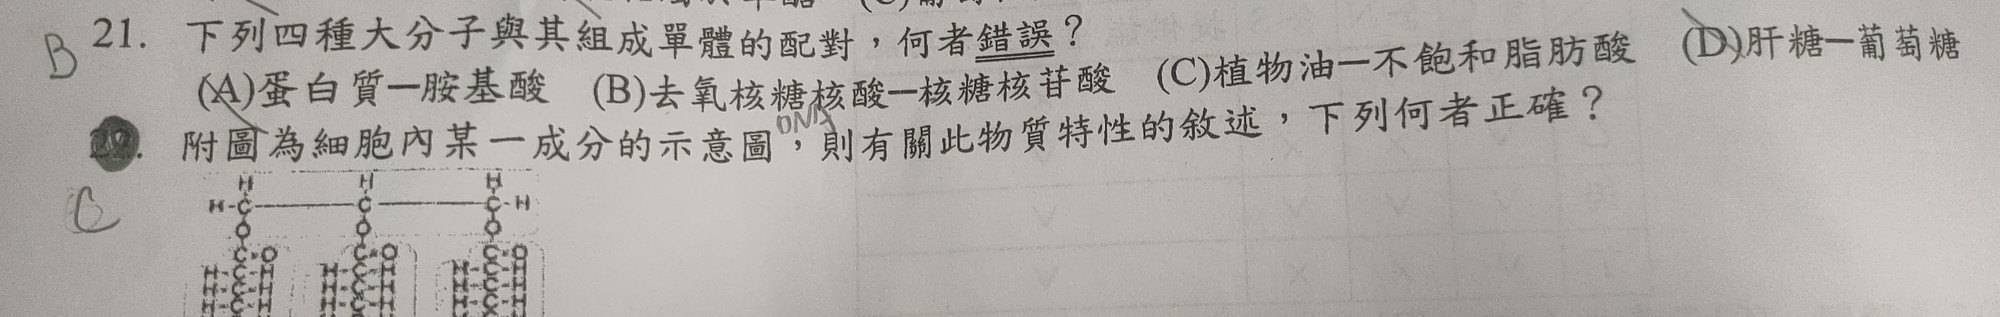 B 21. 下列四種大分子與其組成單體的配對，何者錯誤？
(A)蛋白質—胺基酸 (B)去氧核糖核酸—核糖核苷酸 (C)植物油—不飽和脂肪酸 (D)肝糖—葡萄糖
DNA
22. 附圖為細胞內某一成分的示意圖，則有關此物質特性的敘述，下列何者正確？
C
H H H
H-C C C-H
O O O
C=O C=O C=O